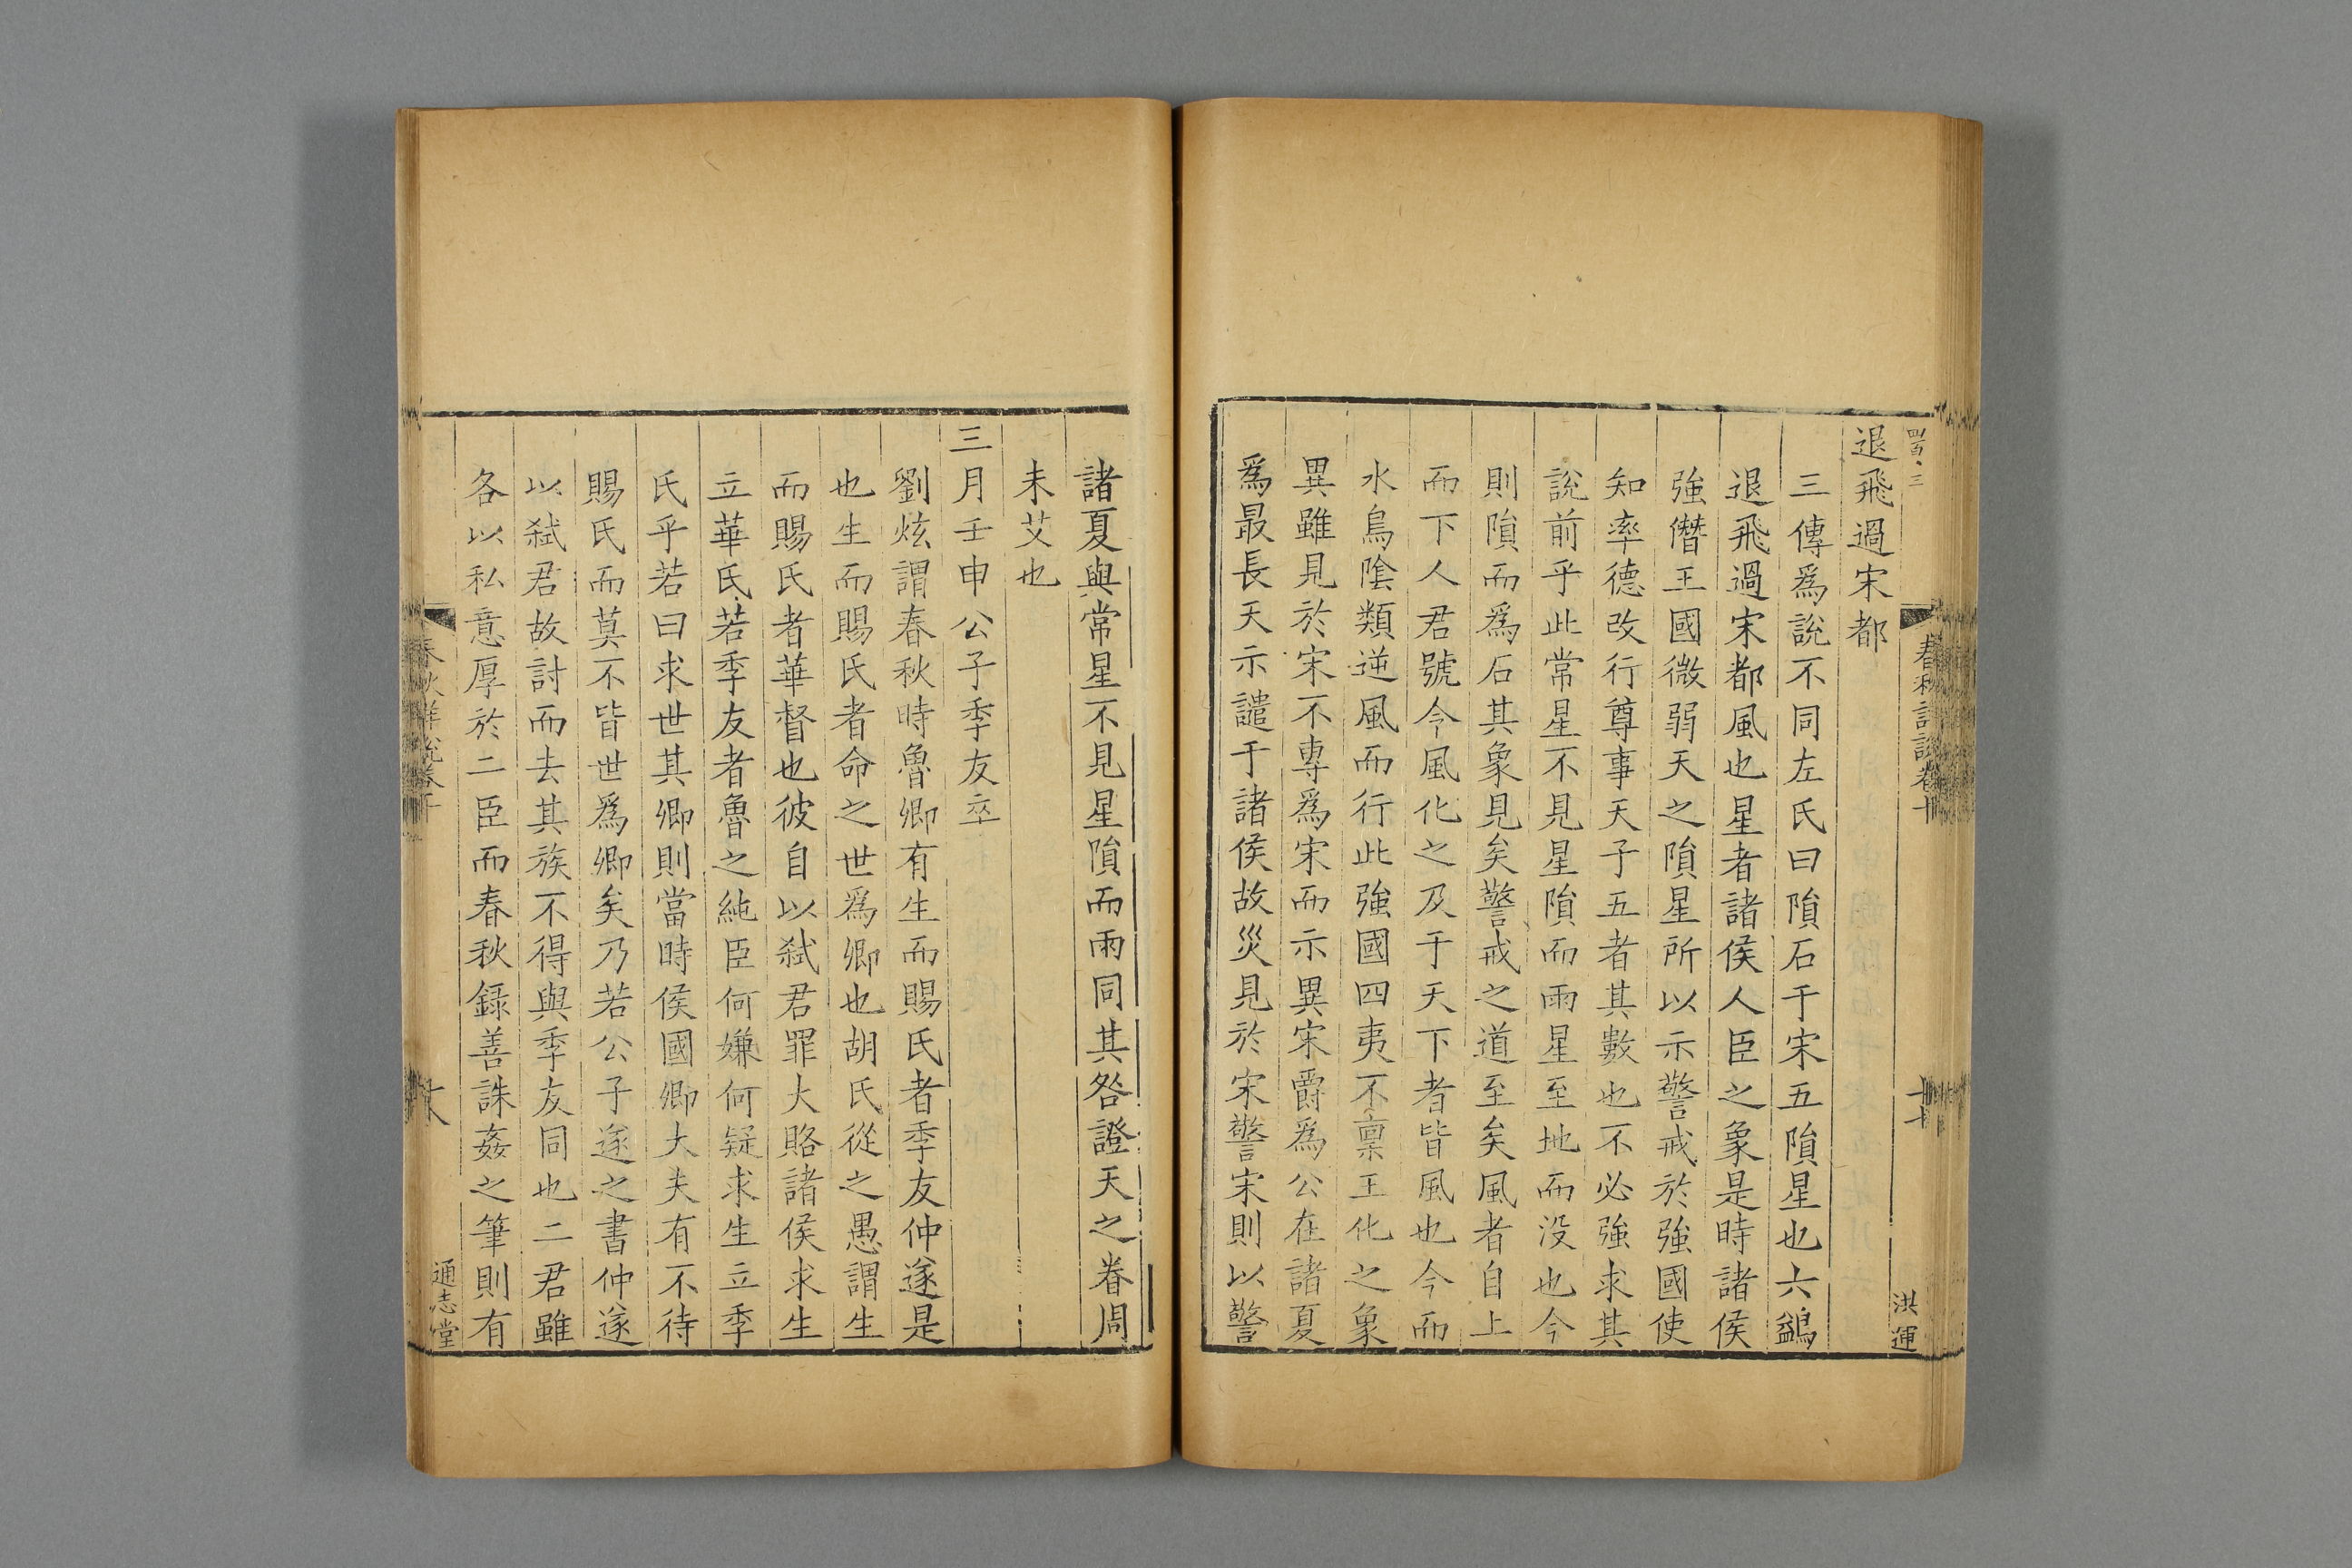 退飛過宋都
三傳爲說不同左氏曰隕石于宋五隕星也六鷁
退飛過宋都風也星者諸侯人臣之象是時諸侯
強僭王國微弱天之隕星所以示警戒於強國使
知率德改行尊事天子五者其數也不必強求其
說前乎此常星不見星隕而雨星至地而没也今
則隕而爲石其象見矣警戒之道至矣風者自上
而下人君號令風化之及于天下者皆風也今而
水鳥陰類逆風而行此強國四夷不禀王化之象
異雖見於宋不專爲宋而示異宋爵爲公在諸夏
爲最長天示譴于諸侯故災見於宋警宋則以警
洪運
諸夏與常星不見星隕而雨同其咎證天之眷周
未艾也
三月壬申公子季友卒
劉炫謂春秋時魯卿有生而賜氏者季友仲遂是
也生而賜氏者命之世爲卿也胡氏從之愚謂生
而賜氏者華督也彼自以弑君罪大賂諸侯求生
立華氏若季友者魯之純臣何嫌何疑求生立季
氏乎若曰求世其卿則當時侯國卿大夫有不待
賜氏而莫不皆世爲卿矣乃若公子遂之書仲遂
以弑君故討而去其族不得與季友同也二君雖
各以私意厚於二臣而春秋録善誅姦之筆則有
春秋詳說卷十
通志堂